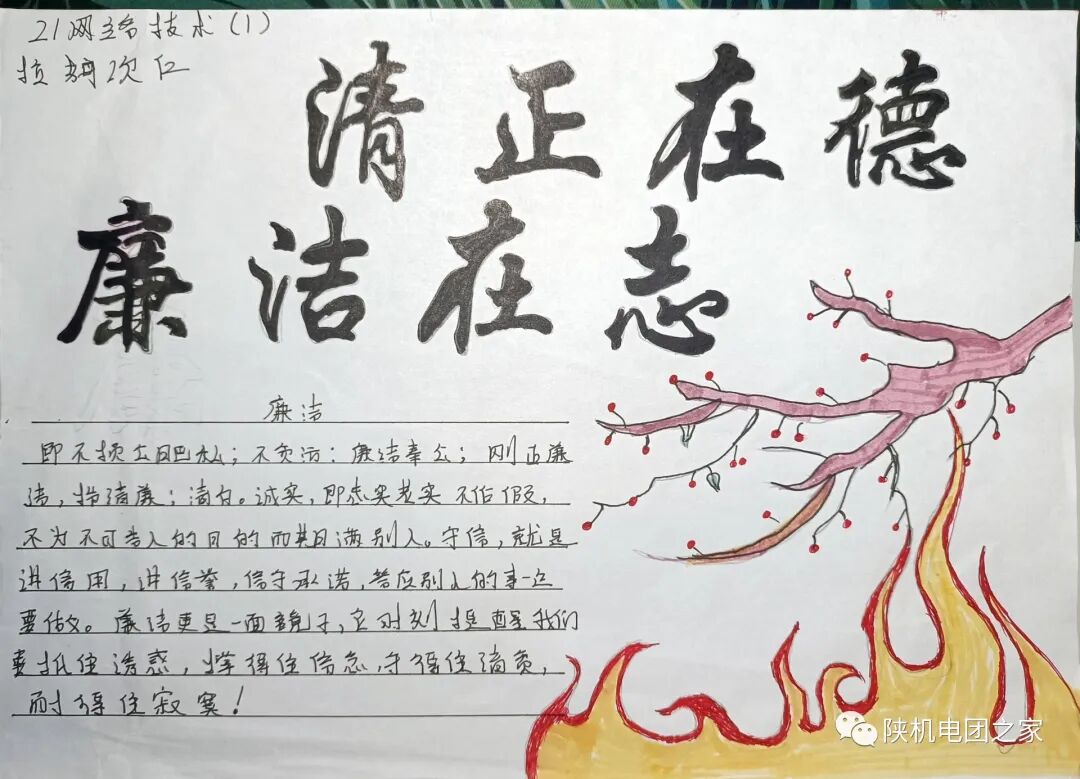 21网络技术(1)
拉姆次仁
清正在德
廉洁在志
廉洁
即不损公肥私；不贪污：廉洁奉公；刚正廉
洁，指清廉；清白。诚实，即忠实老实 不作假，
不为不可告人的目的而欺瞒别人。守信，就是
讲信用，讲信誉，信守承诺，答应别人的事一定
要做。廉洁更是一面镜子，它时刻提醒我们
要抵住诱惑，掌得住信念，守得住清贫，
耐得住寂寞！
陕机电团之家